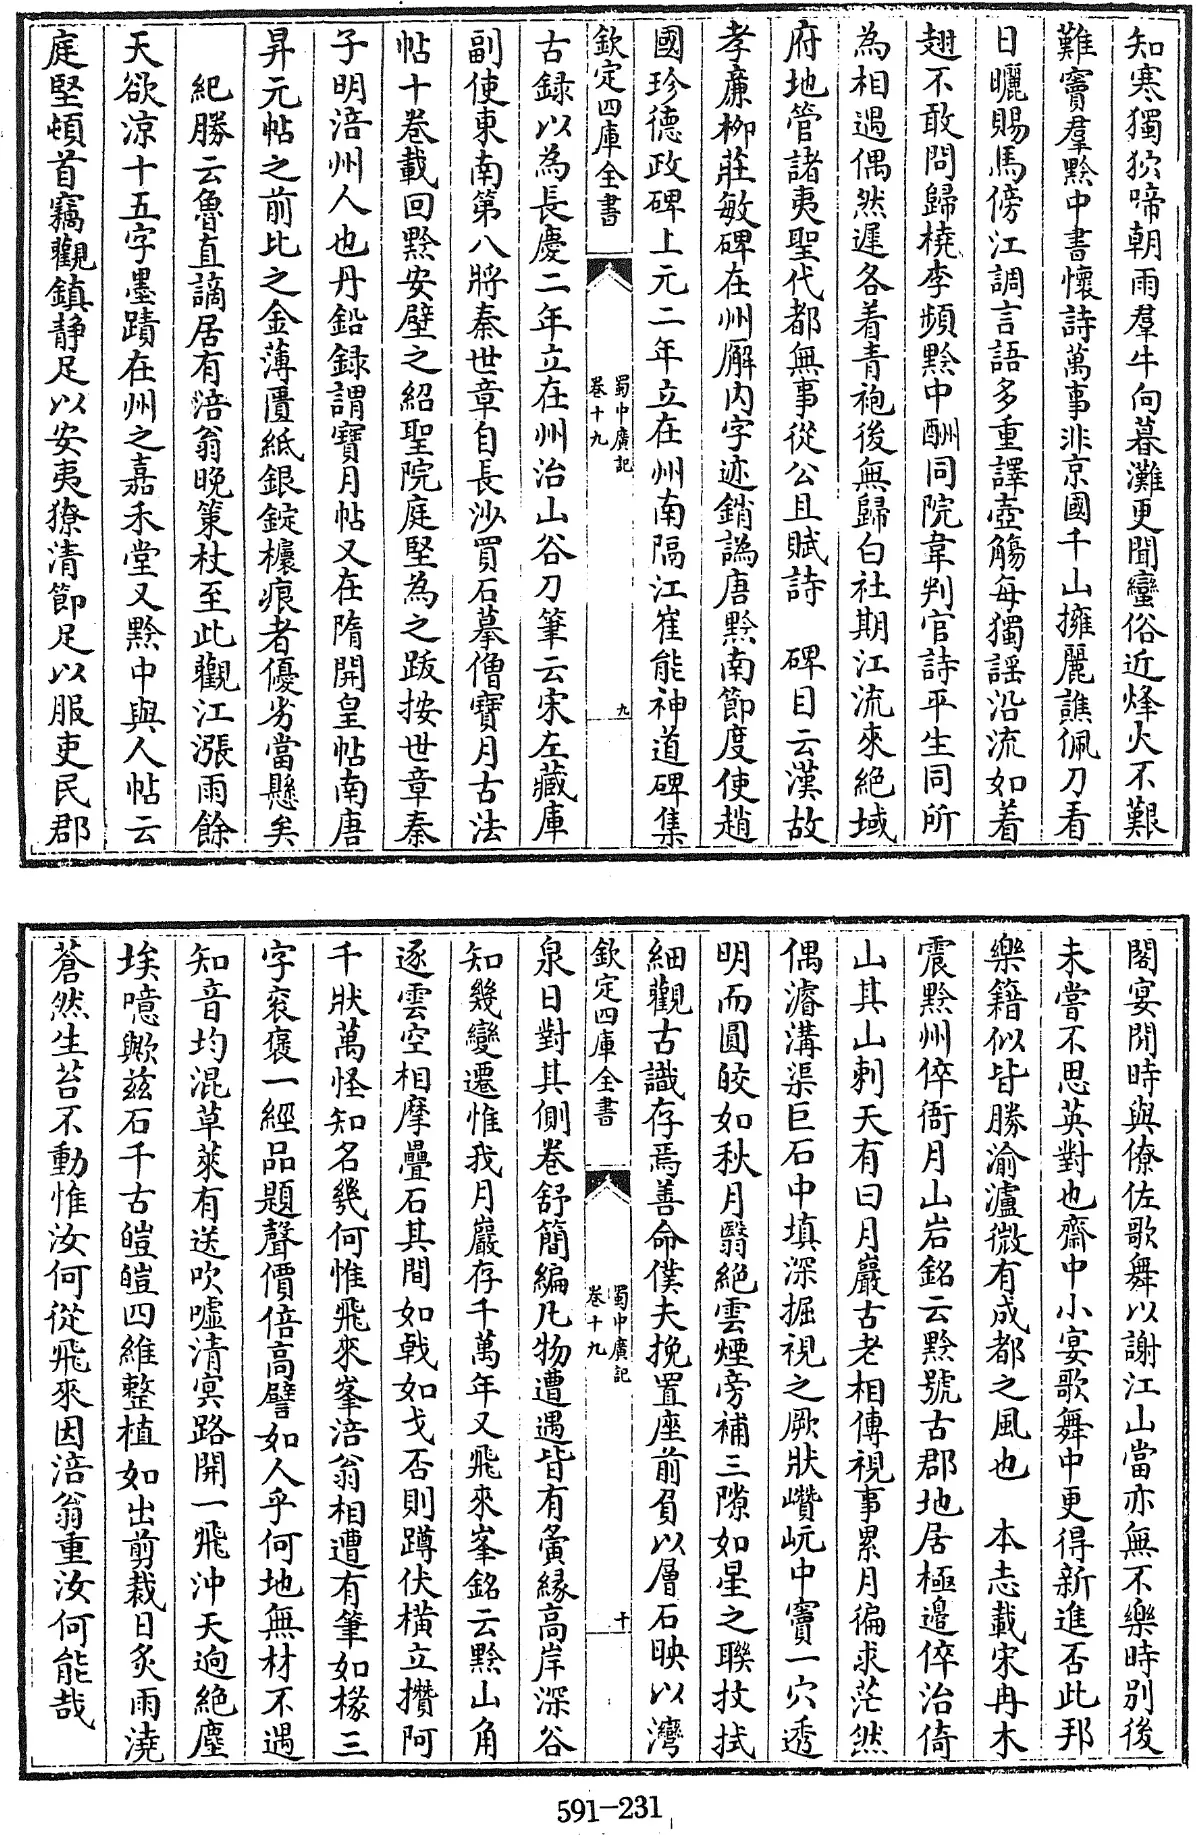 知寒獨狖啼朝雨羣牛向暮灘更聞蠻俗近烽火不艱
難竇羣黔中書懷詩萬事非京國千山擁麗譙佩刀看
日曬賜馬傍江調言語多重譯壺觴每獨謡沿流如着
翅不敢問歸橈李頻黔中酬同院韋判官詩平生同所
為相遇偶然遲各着青袍後無歸白社期江流來絶域
府地管諸夷聖代都無事從公且賦詩　碑目云漢故
孝廉柳莊敏碑在州廨内字迹銷譌唐黔南節度使趙
國珍德政碑上元二年立在州南隔江崔能神道碑集
欽定四庫全書
蜀中廣記
卷十九
九
古録以為長慶二年立在州治山谷刀筆云宋左藏庫
副使東南第八將秦世章自長沙買石摹僧寶月古法
帖十巻載回黔安壁之紹聖院庭堅為之跋按世章秦
子明涪州人也丹鉛録謂寶月帖又在隋開皇帖南唐
昇元帖之前比之金薄匱紙銀錠欀痕者優劣當懸矣
紀勝云魯直謫居有涪翁晚策杖至此觀江漲雨餘
天欲凉十五字墨蹟在州之嘉禾堂又黔中與人帖云
庭堅頓首竊觀鎮静足以安夷獠清節足以服吏民郡
閣宴閒時與僚佐歌舞以謝江山當亦無不樂時别後
未嘗不思英對也齋中小宴歌舞中更得新進否此邦
樂籍似皆勝渝瀘微有成都之風也　本志載宋冉木
震黔州倅衙月山岩銘云黔號古郡地居極邊倅治倚
山其山刺天有曰月巖古老相傳視事累月徧求茫然
偶濬溝渠巨石中填深掘視之厥狀巑岏中竇一穴透
明而圓皎如秋月翳絶雲煙旁補三隙如星之聯扙拭
細觀古識存焉善命僕夫挽置座前負以層石映以灣
欽定四庫全書
蜀中廣記
卷十九
十
泉日對其側巻舒簡編凡物遭遇皆有夤緣高岸深谷
知幾變遷惟我月巖存千萬年又飛來峯銘云黔山角
逐雲空相摩疊石其間如戟如戈否則蹲伏横立攢阿
千狀萬怪知名㡬何惟飛來峯涪翁相遭有筆如椽三
字衮褒一經品題聲價倍高譬如人乎何地無材不遇
知音均混草萊有送吹嘘清㝠路開一飛沖天逈絶塵
埃噫歟兹石千古皚皚四維整植如出剪裁日炙雨澆
蒼然生苔不動惟汝何從飛來因涪翁重汝何能哉
591-231